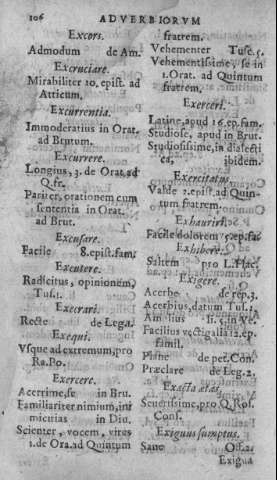 106 ADVERBIORVM
Excors.
Admodum de Am.
Excruciare.
Mirabiliter 10. epist. ad
Atticum.
Excurrentia.
Immoderatius in Orat.
ad Brutum.
Excurrere.
Longius, 3. de Orat. ad
Q. fr.
Pariter, orationem cum
sententia in Orat.
ad Brut.
Excusare.
Facile 8. epist. fam.
Excutere.
Radicitus, opinionem,
Tus. 1.
Execrari.
Recte de Lega.
Exequi.
Vsque ad extremum, pro
Ra. Po.
Exercere.
Acerrime, se in Bru.
Familiariter nimium, ini
micutias in Diu.
Scienter, vocem, vires
1. de Ora. ad Quintum
fratrem.
Vehementer Tusc. 5.
Vehementissime, se in
1. Orat. ad Quintum
fratrem.
Exerceri.
Latine, apud 16. ep. fam.
Studiose, apud in Brut.
Studiosissime, in dialecti
ca, ibidem.
Exercitatus
Valde 2. epist. ad Quin
tum fratrem.
Exhauriri.
Facile dolorem 5. ep. fa
Exhibere.
Saltem pro L. Flac.
Exigere.
Acerbe de rep. 3.
Acerbius, datum Tus. 1.
in Ve.
Facilius vectigalia 12. ep.
famil.
Plane de pet. Con.
Præclare de Leg. 2.
Exacta ætas.
Seuerissime, pro Q. Ros.
Com.
Exiguus sumptus.
Sane Off. 2.
Exigua